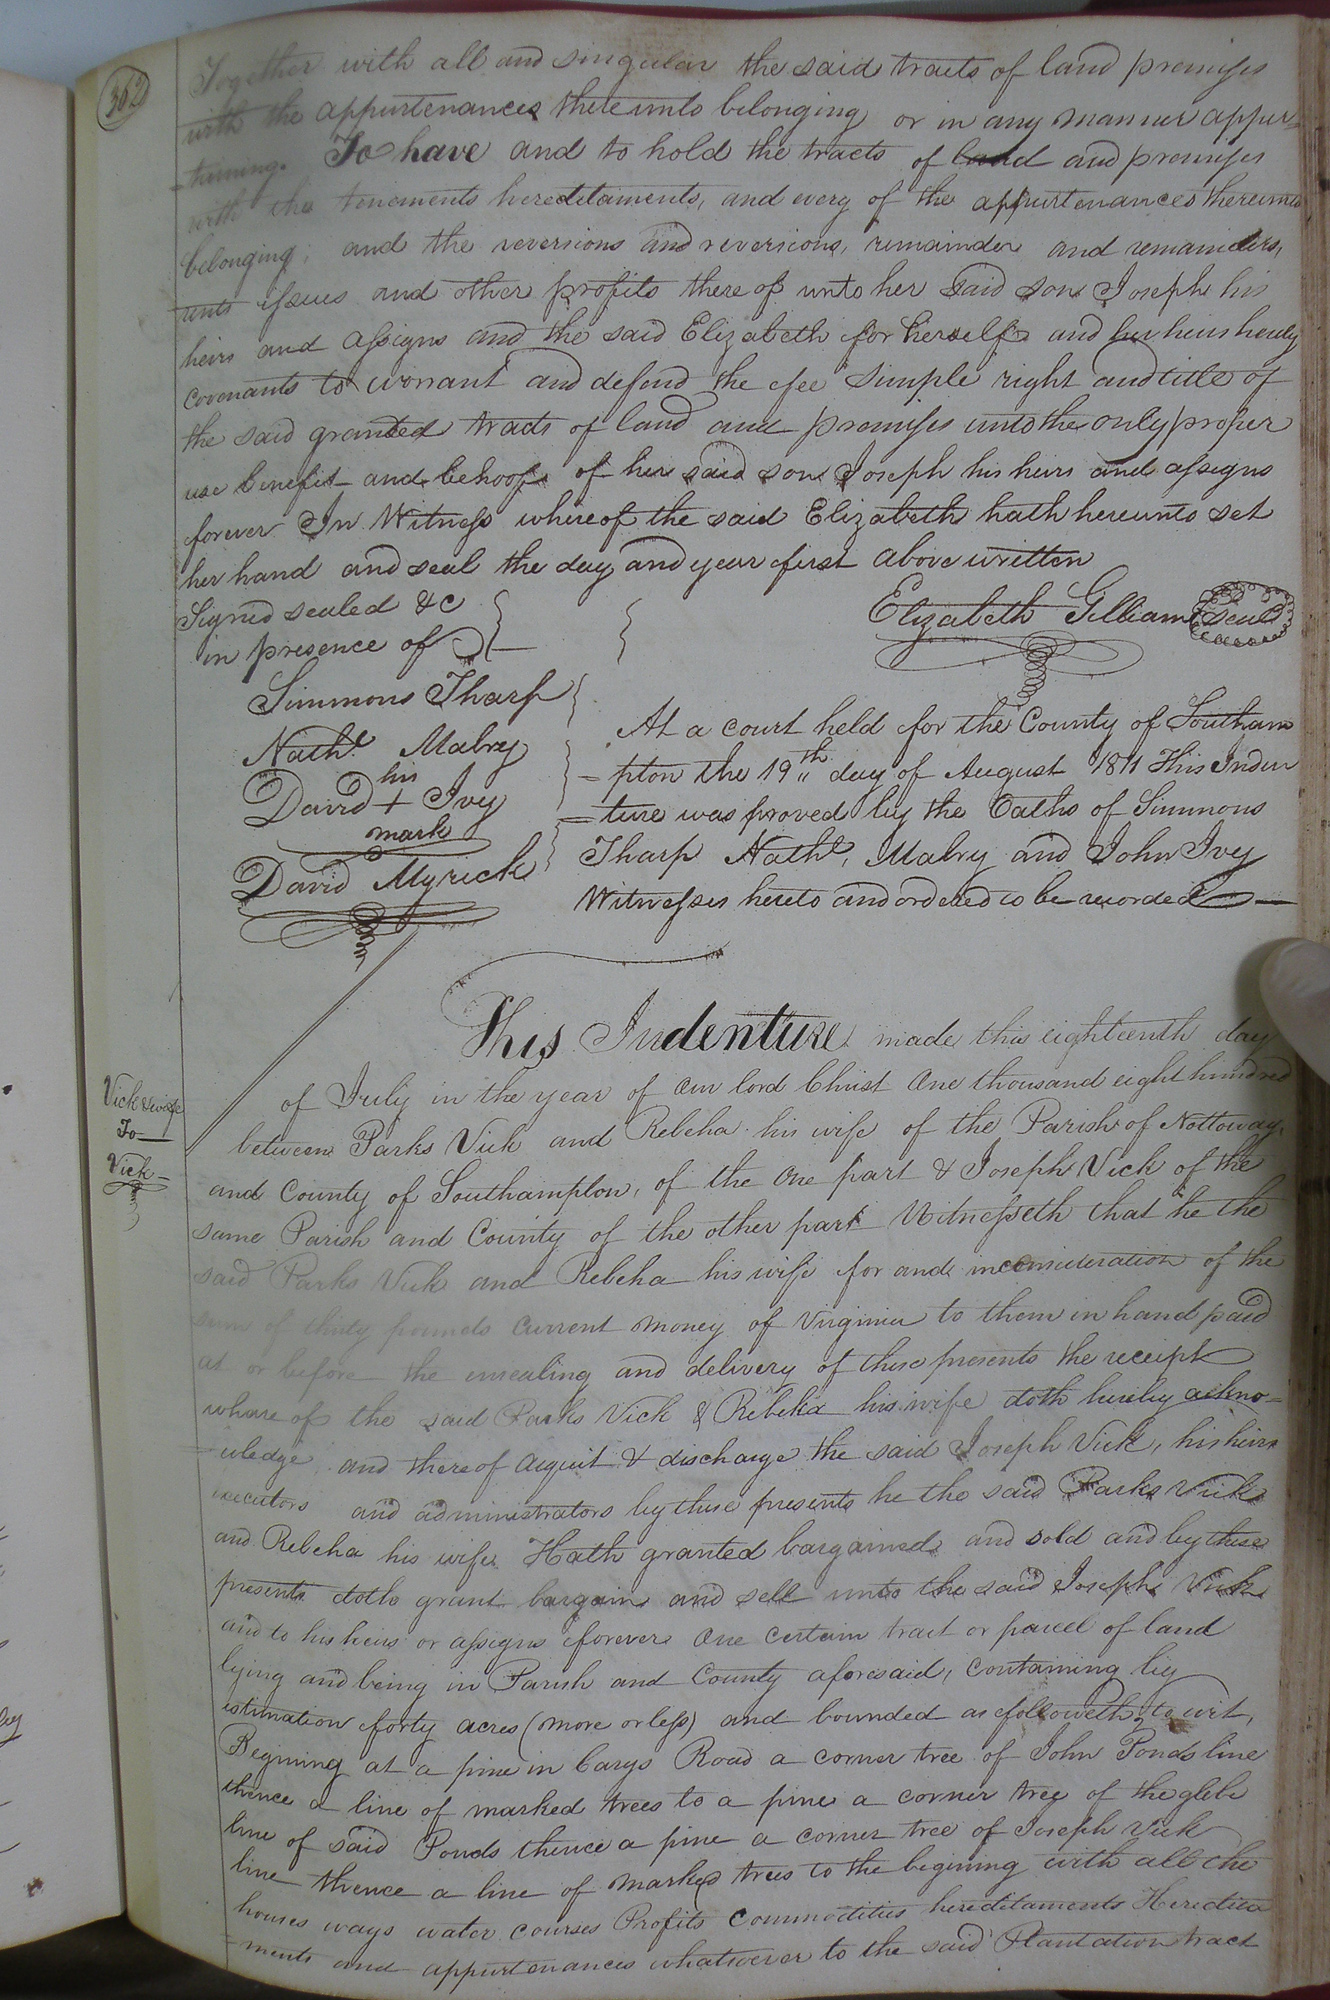 362
Together with all and singular the said tracts of land premises
with the appurtenances thereunto belonging or in any manner apper=
=taining. To have and to hold the tracts of land and premises
with the tenements hereditaments, and every of the appurtenances thereunto
belonging, and the reversions and reversions, remainder and remainders,
rents issues and other profits thereof unto her said son Joseph his
heirs and assigns and the said Elizabeth for herself and her heirs hereby
covenants to warrant and defend the fee simple right and title of
the said granted tracts of land and premises unto the only proper
use benefit and behoof of her said son Joseph his heirs and assigns
forever In Witness whereof the said Elizabeth hath hereunto set
her hand and seal the day and year first above written
Signed sealed &c
in presence of
Elizabeth Gilliam seal
Simmons Tharp
Nathl. Mabry
his
David + Ivy
mark
David Myrick
At a court held for the County of Southam
=pton the 19th day of August 1811 This Inden
=ture was proved by the Oaths of Simmons
Tharp Nathl. Mabry and John Ivy
Witnesses hereto and ordered to be recorded
Vick & wife
To
Vick
This Indenture made this eighteenth day
of July in the year of our lord Christ One thousand eight hundred
between Parks Vick and Rebeha his wife of the Parish of Nottoway,
and County of Southampton, of the One part & Joseph Vick of the
same Parish and County of the other part Witnesseth that he the
said Parks Vick and Rebeha his wife for and inconsideration of the
sum of thirty pounds Current money of Virginia to them in hand paid
at or before the unsealing and delivery of these presents the receipt
whareof the said Parks Vick & Rebeka his wife doth hereby ackno=
=wledge and thereof acquit & discharge the said Joseph Vick, his heirs
executors and administrators by these presents he the said Parks Vick
and Rebeha his wife Hath granted bargained and sold and by these
presents doth grant bargain and sell unto the said Joseph Vick
and to his heirs or assigns forever One certain tract or parcel of land
lying and being in Parish and County aforesaid, containing by
estimation forty acres (more or less) and bounded as followeth, to wit,
Begining at a pine in Carys Road a corner tree of John Ponds line
thence a line of marked trees to a pine a corner tree of the glebe
line of said Ponds thence a pine a corner tree of Joseph Vick
line thence a line of marked trees to the begining with all the
houses ways water courses Profits commodities hereditaments Heredita
=ments and appurtenances whatsoever to the said Plantation tract